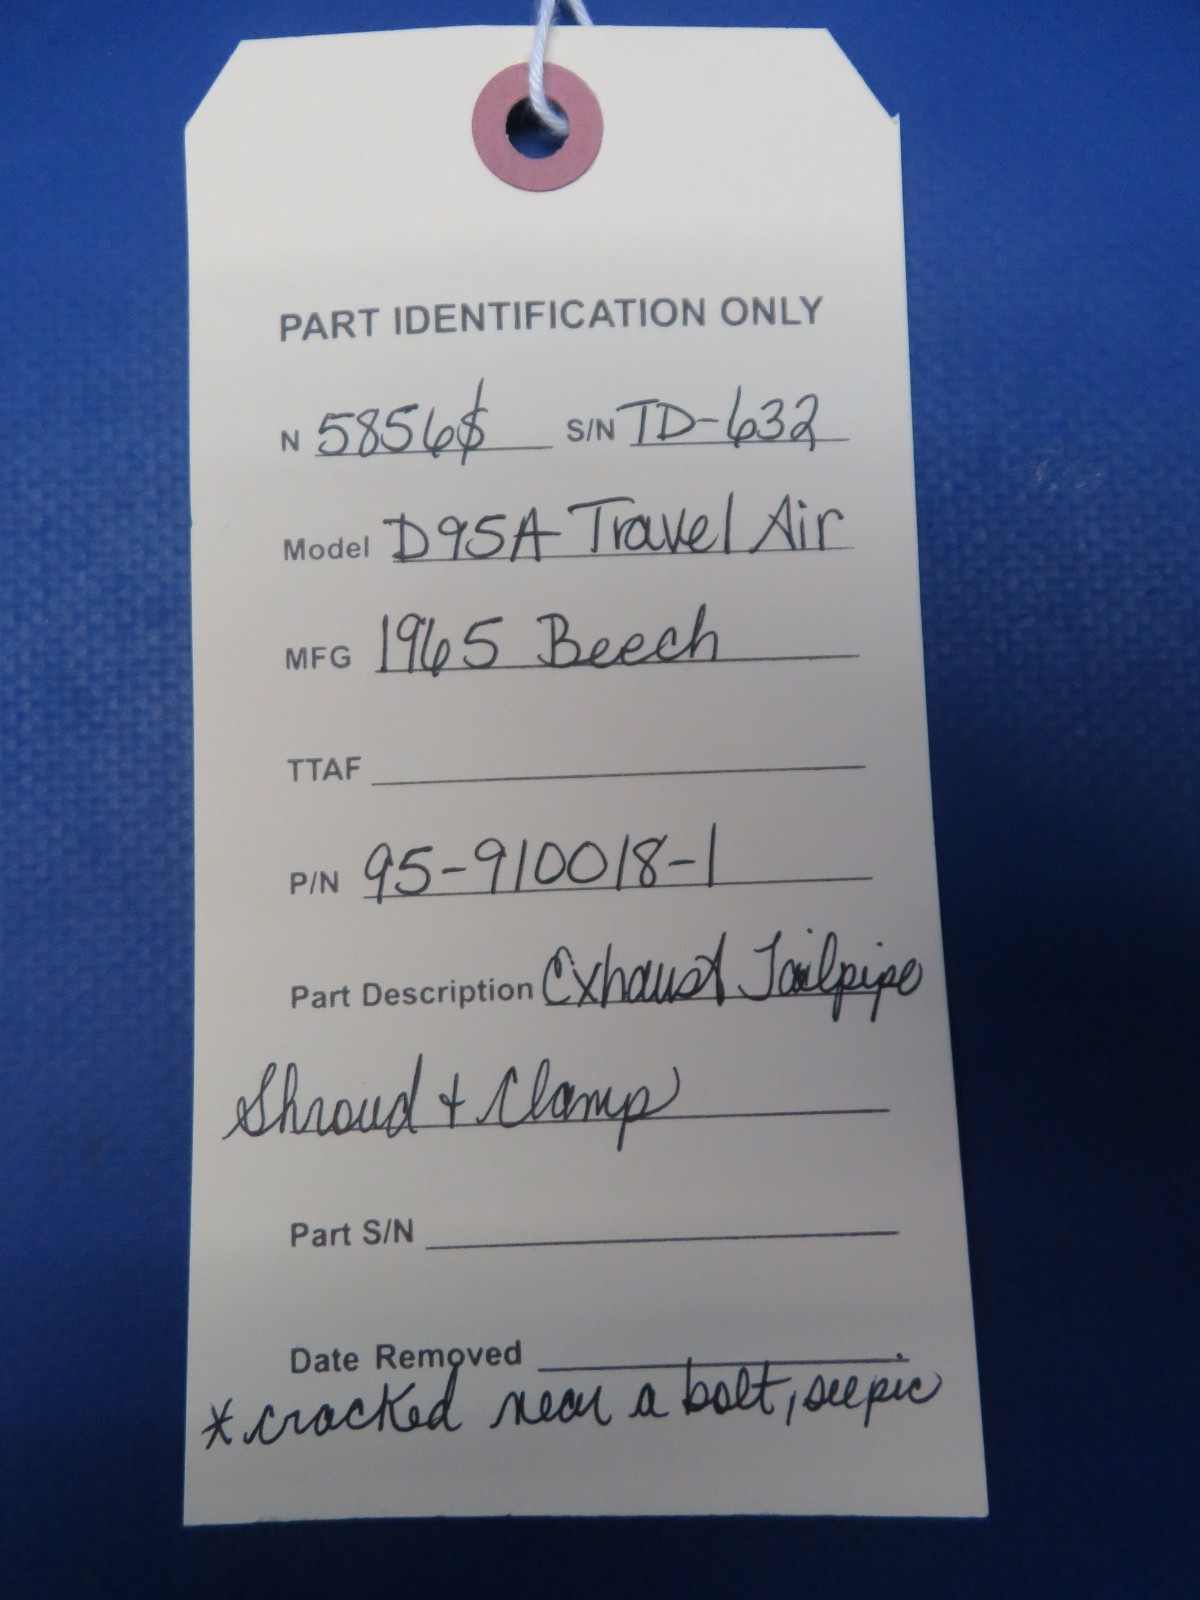 PART IDENTIFICATION ONLY
N 5856$ S/N TD-632
Model D95A Travel Air
MFG 1965 Beech
TTAF
P/N 95-910018-1
Part Description Exhaust Tailpipe
Shroud + Clamp
Part S/N
Date Removed
*cracked near a bolt, see pic